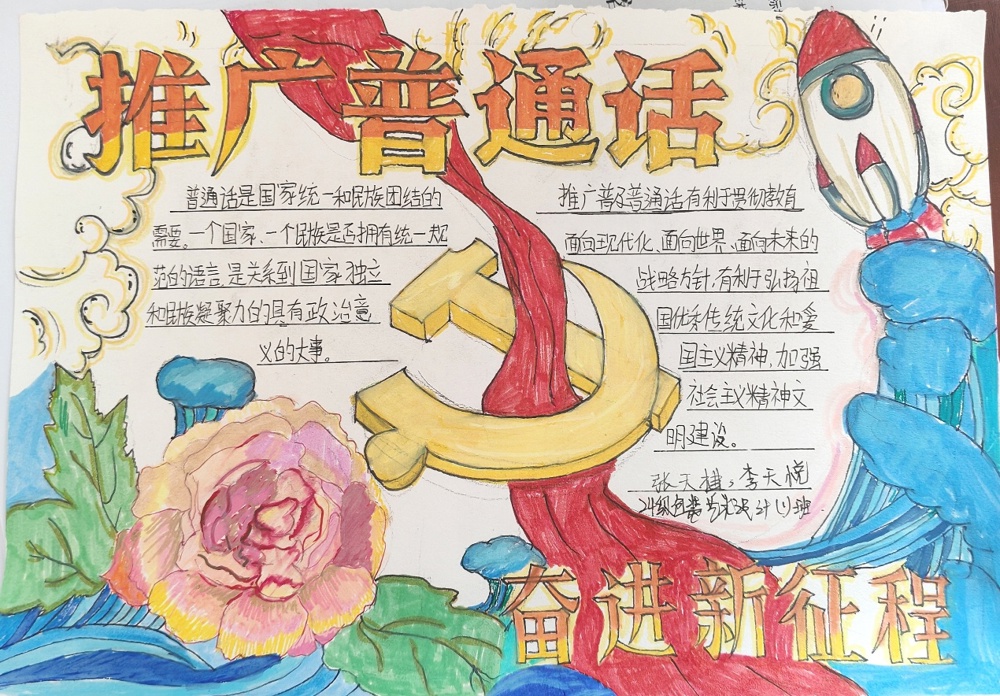 推广普通话
普通话是国家统一和民族团结的
需要。一个国家、一个民族是否拥有统一规
范的语言,是关系到国家独立
和民族凝聚力的具有政治意
义的大事。
推广普及普通话有利于贯彻教育
面向现代化、面向世界、面向未来的
战略方针,有利于弘扬祖
国优秀传统文化和爱
国主义精神,加强
社会主义精神文
明建设。
张天 李天悦
24级 设计(1)班
奋进新征程